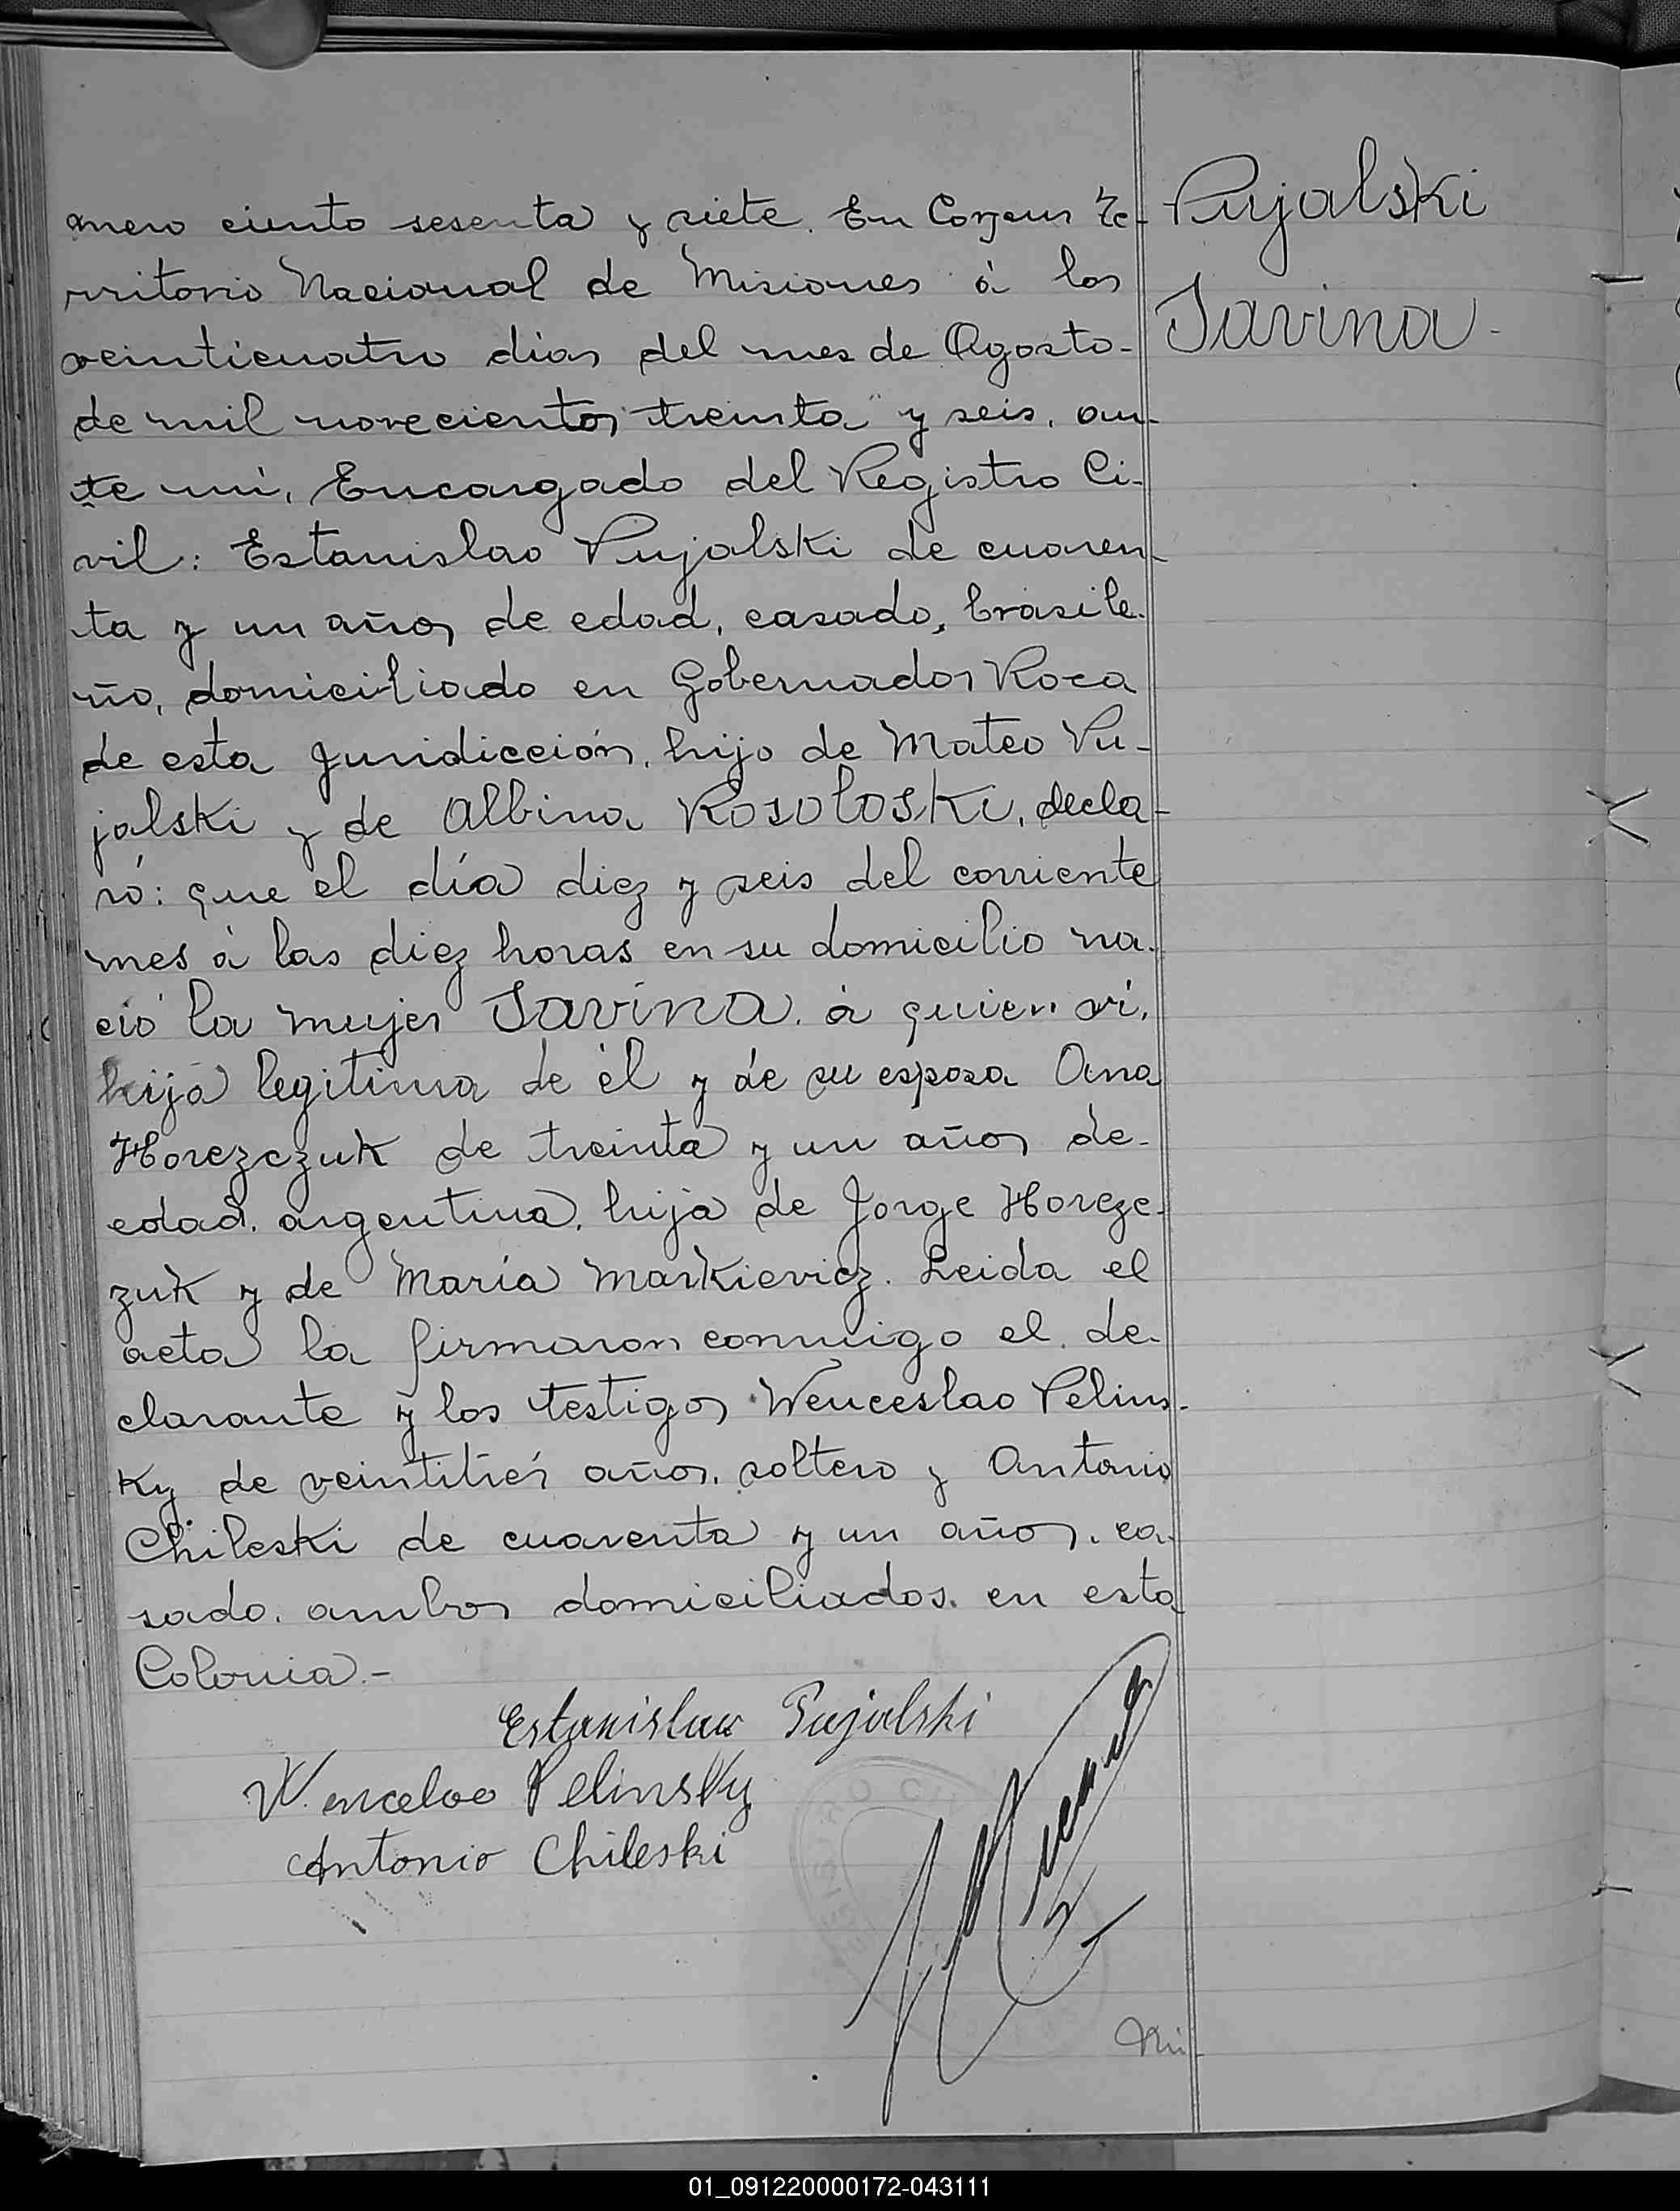 Pujalski
Savina -
mero ciento sesenta y siete. En Corpus Te-
rritorio Nacional de Misiones á los
veinticuatro dias del mes de Agosto-
de mil novecientos treinta y seis, an-
te mi, Encargado del Registro Ci-
vil: Estanislao Pujalski de cuaren-
ta y un años de edad, casado, brasile-
ño, domiciliado en Gobernador Roca
de esta Juridicción, hijo de Mateo Pu-
jalski y de Albina Rosoloski, decla-
ró: que el día diez y seis del corriente
mes á las diez horas en su domicilio na-
ció la mujer Savina, á quien vi,
hija legitima de él y de su esposa Ana
Horezczuk de treinta y un años de-
edad, argentina, hija de Jorge Horezc-
zuk y de María Markievicz. Leida el
acta la firmaron conmigo el de-
clarante y los testigos Wenceslao Pelins-
ky de veintitrés años, soltero y Antonio
Chileski de cuarenta y un años, ca-
sado, ambos domiciliados en esta
Colonia.-
Estanislaw Pujalski
Wenceloo Pelinsky
Antonio Chileski
01_091220000172-043111